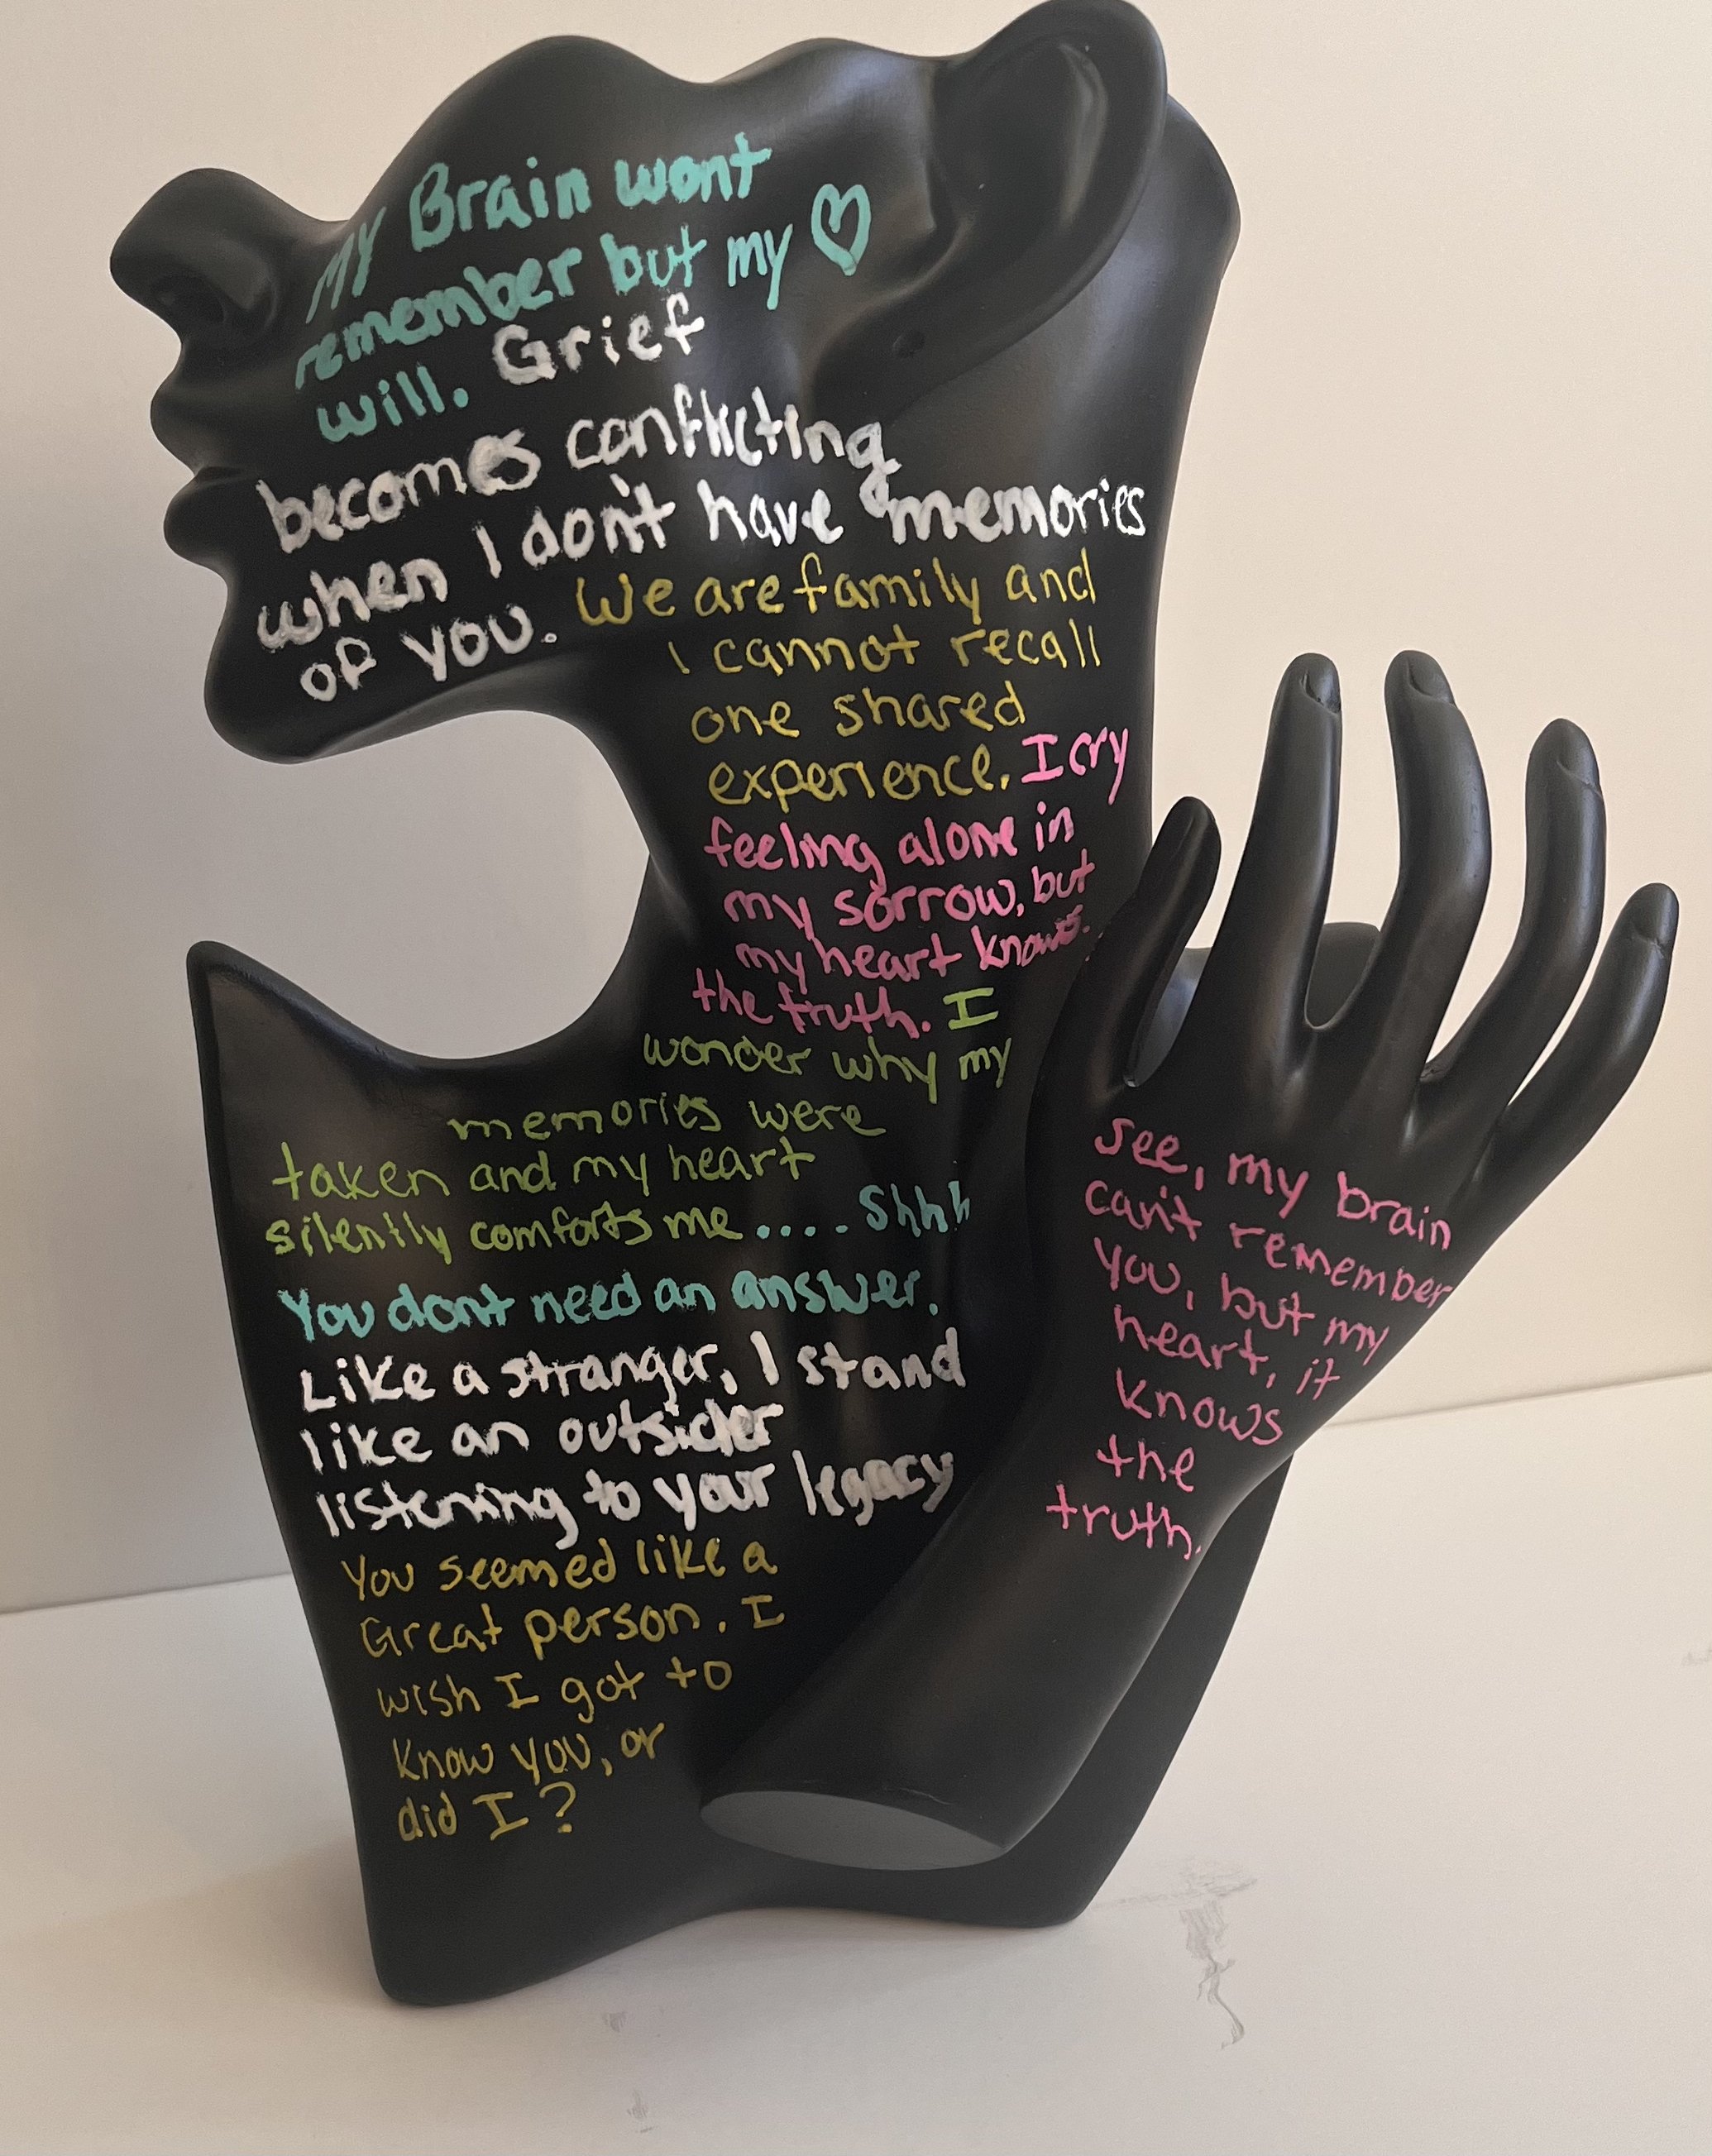 My Brain wont
remember but my ♡
will. Grief
becomes conflicting
when I don't have memories
of you. We are family and
I cannot recall
one shared
experience. I cry
feeling alone in
my sorrow, but
my heart knows.
the truth. I
wonder why my
memories were
taken and my heart
silently comforts me .... Shhh
You dont need an answer.
Like a stranger, I stand
like an outsider
listening to your legacy
You seemed like a
Great person. I
wish I got to
know you, or
did I?
See, my brain
can't remember
you, but my
heart, it
knows
the
truth.